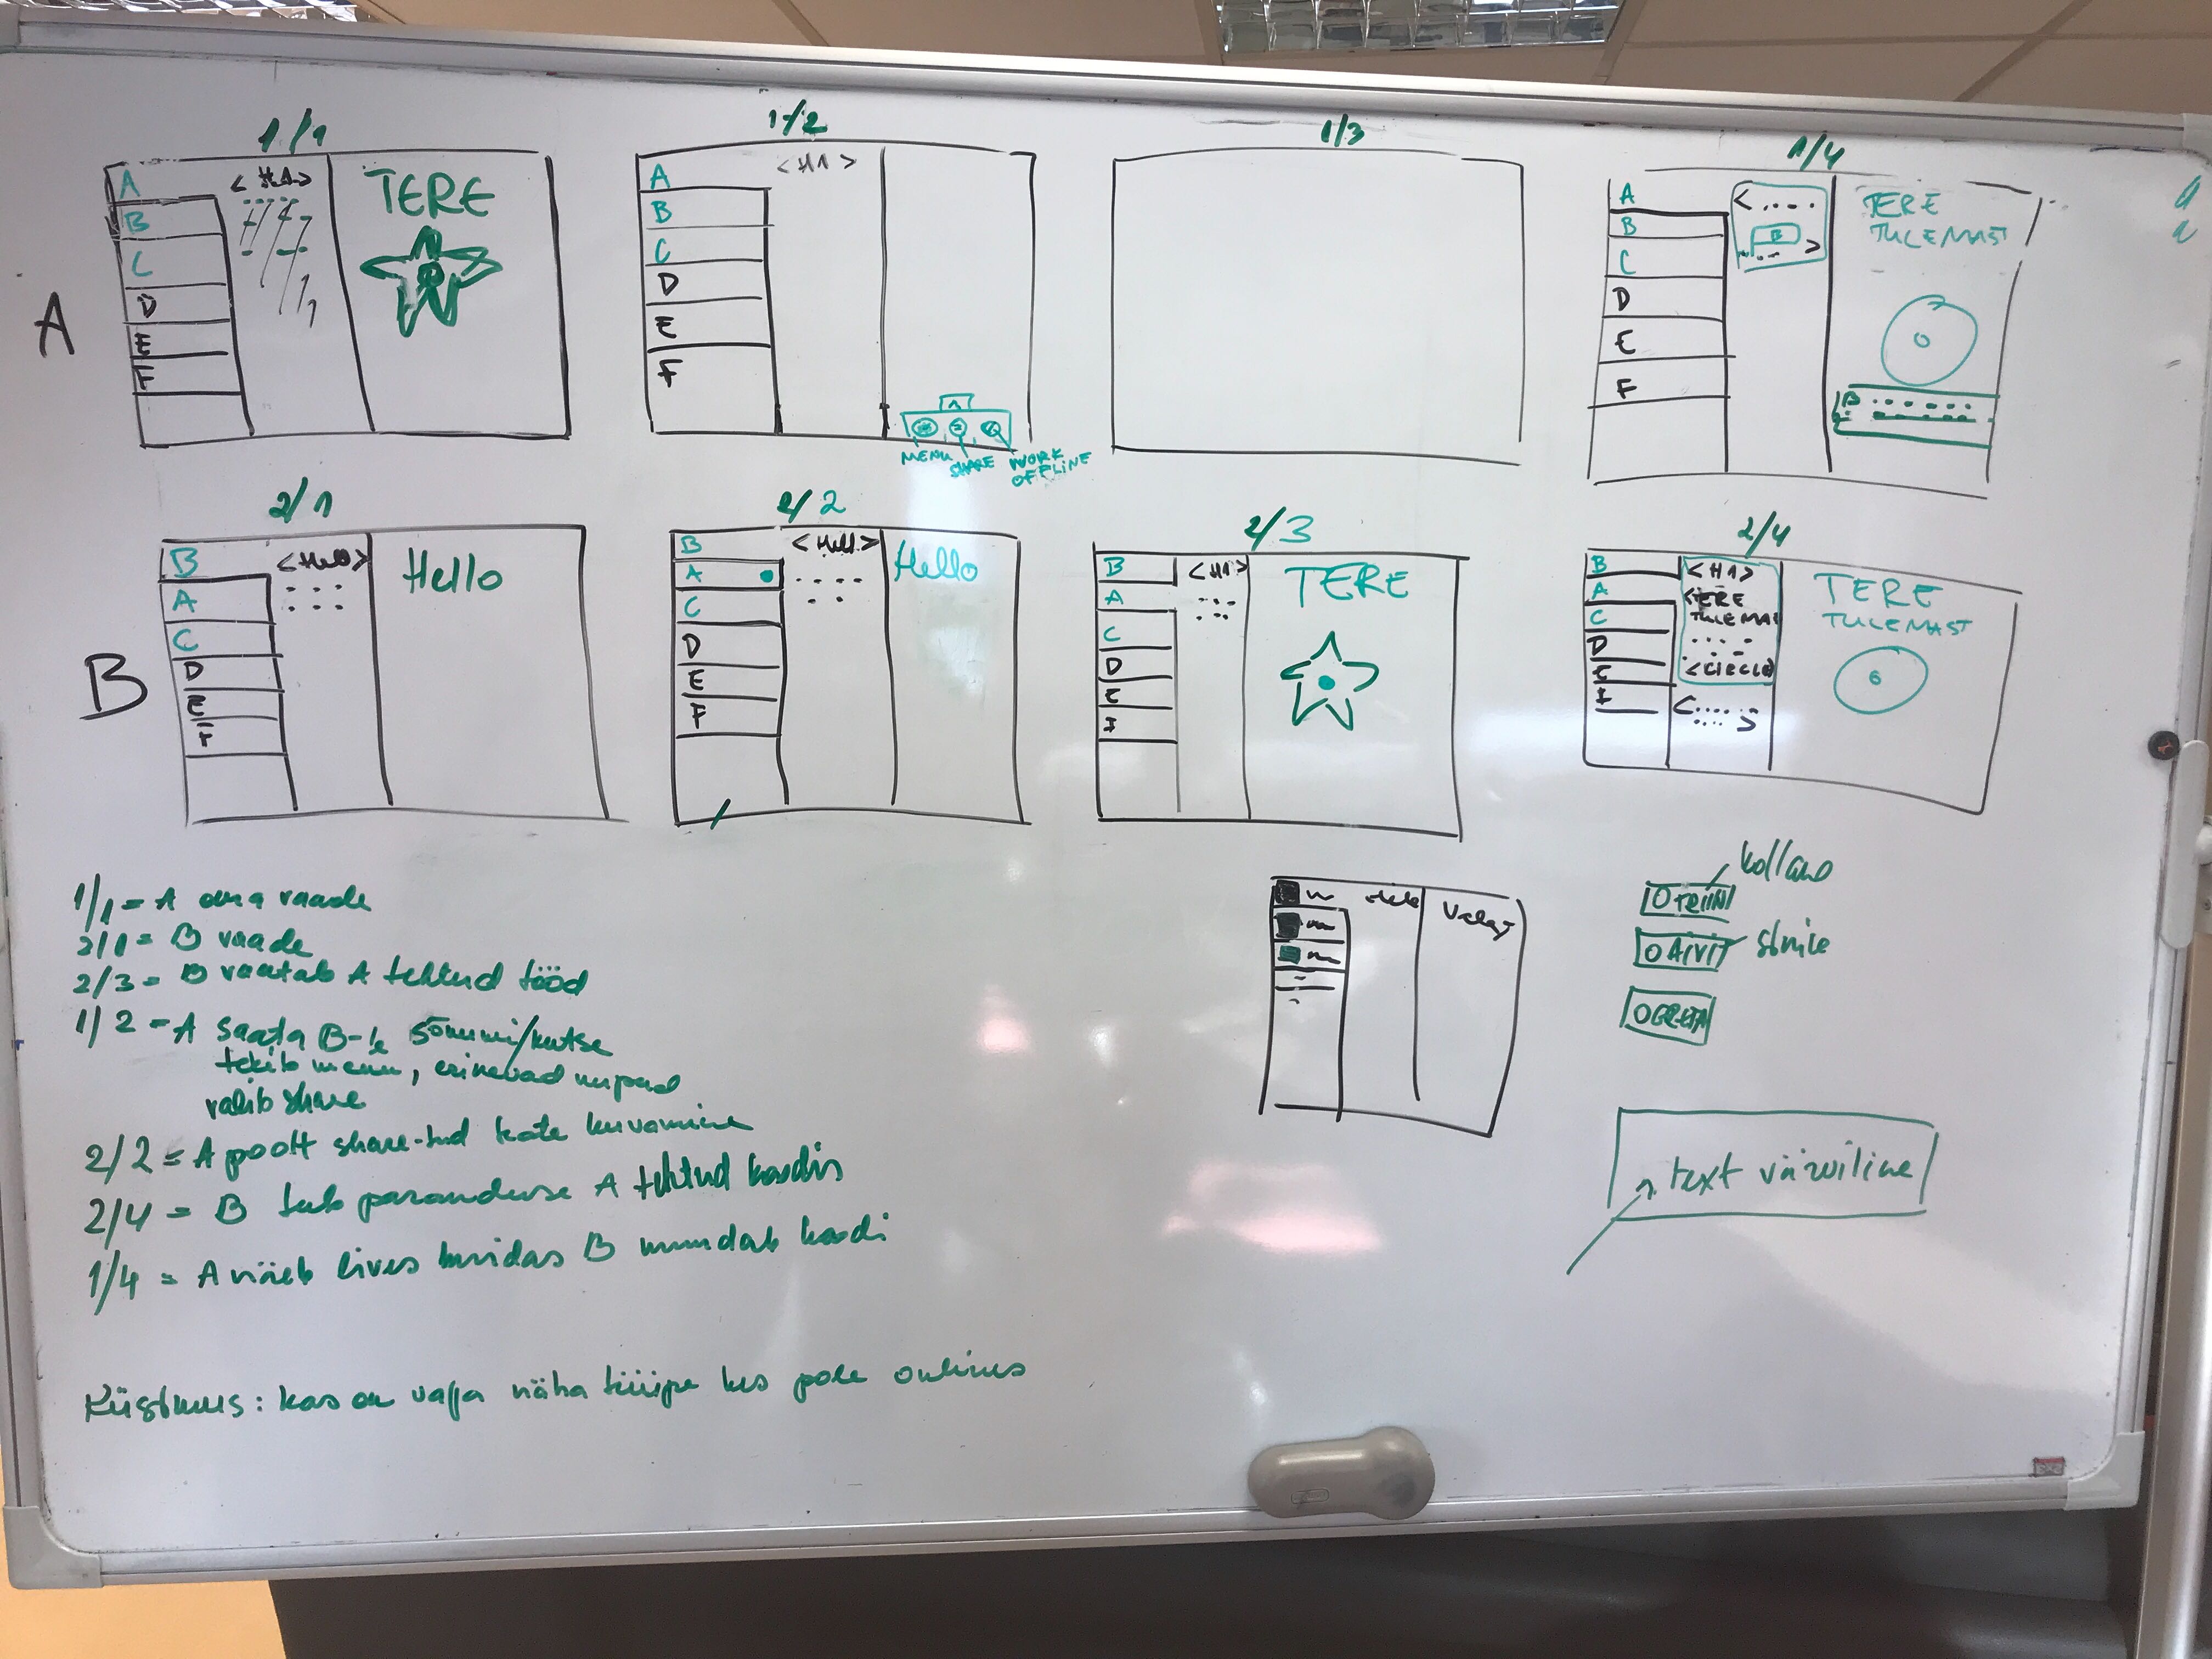 1/1
1/2
1/3
1/4
A
A
B
C
D
E
F
< H1 >
TERE
A
B
C
D
E
F
< H1 >
MENU
SHARE
WORK
OFFLINE
A
B
C
D
E
F
<
B
>
TERE
TULEMAST
B
2/1
2/2
2/3
2/4
B
B
A
C
D
E
F
<Hello>
Hello
B
A
C
D
E
F
<Hello>
Hello
B
A
C
D
E
<H1>
TERE
B
A
C
D
E
<H1>
<TERE
TULEMAS
<CIRCLE>
TERE
TULEMAST
1/1 = A oma vaade
2/1 = B vaade
2/3 = B vaatab A tehtud tööd
1/2 = A saata B-le sõnumi/kutse
tekib menu, erinevad nupud
valib share
2/2 = A poolt share-tud kuvamine
2/4 = B teeb paranduse A tehtud koodis
1/4 = A näeb lives kuidas B muudab koodi
Küsimus: kas on vaja näha tüüpe kes pole onlines
TRIIN
AIVIT
GRETA
text värviline